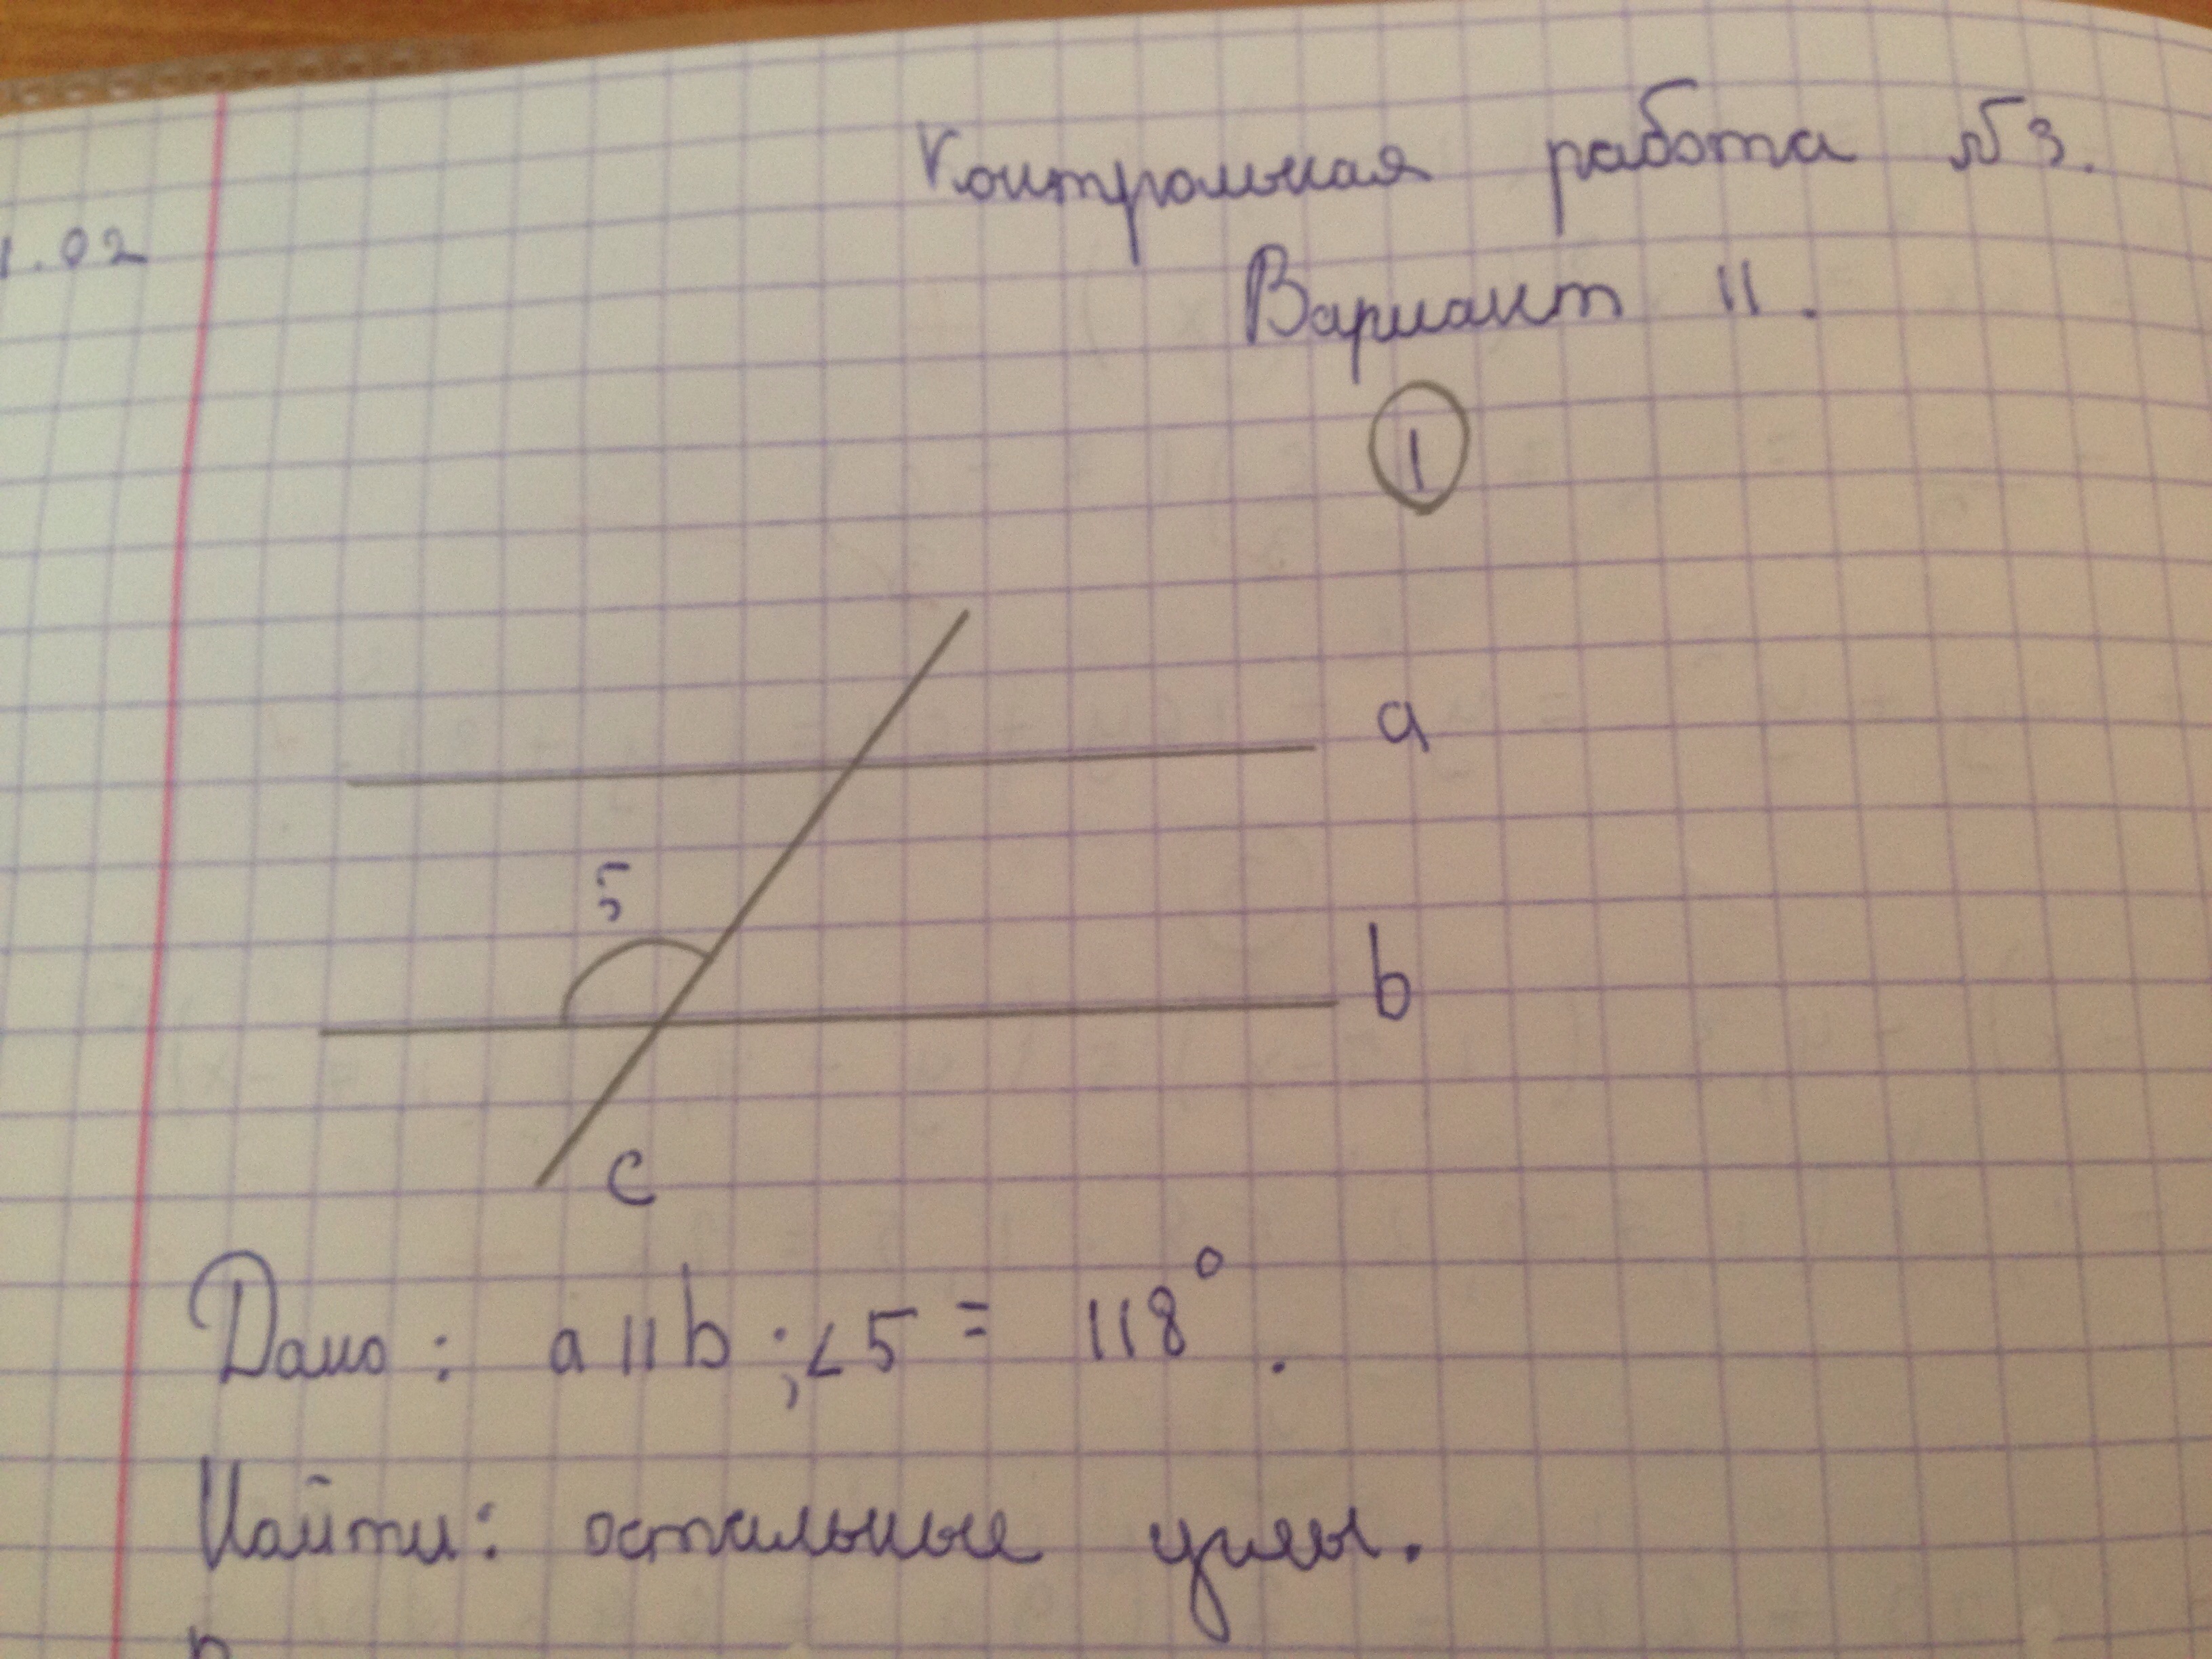 Контрольная работа №3.
1.02
Вариант II.
1
a
5
b
c
Дано: a || b ; ∠5 = 118°.
Найти: остальные углы.